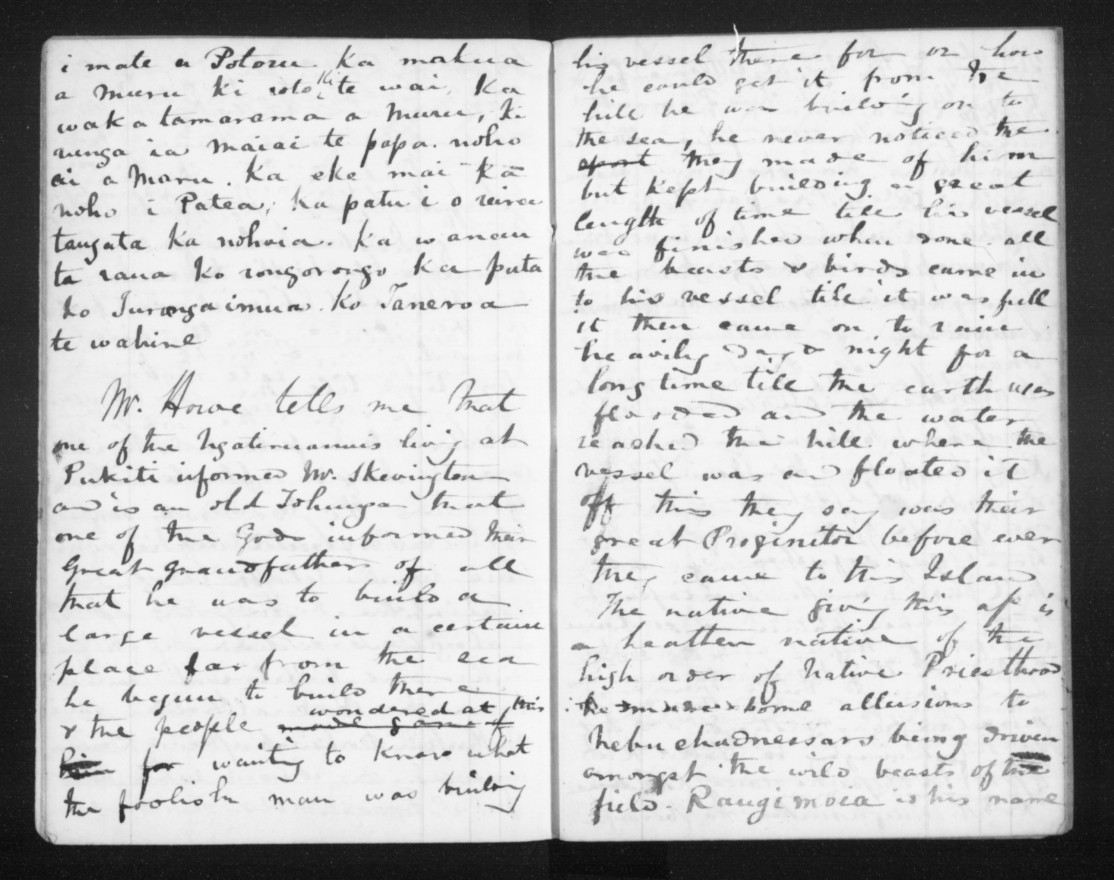 i mate a Potoru ka mahua
a muru ki roto ki te wai, Ka
waka tamarama a Muru, ki
runga ia maiai te papa. noho
ai a Maru. Ka eke mai Ka
noho i Patea; ka patu i o reira
tangata ka nohoia. ka wanau
ta raua ko rongorongo ka puta
ko Turangaimua. ko Taneroa
te wahine
Mr. Howe tells me that
one of the Ngatimanuis living at
Pukiti informed Mr. Skevington
and is an old Tohunga that
one of the Gods informed their
Great grandfather of all
that he was to build a
large vessel in a certain
place far from the sea
he begun to build there
& the people made game of wondered at this
him for wanting to know what
the foolish man was building
his vessel there for or how
he could get it from the
hill he was building on to
the sea, he never noticed the
sport they made of him
but kept building a great
length of time till his vessel
was finished when done all
the beasts & birds came in
to his vessel till it was full
it then came on to rain
heavily day & night for a
long time till the earth was
flooded and the water
reached the hill where the
vessel was and floated it
off this they say was their
great Proginitor before ever
they came to this Island
The native giving this a/c is
a heathen native of the
high order of Native Priesthood
some allusions to
Nebuchadnessars being driven
amongst the wild beasts of the
field. Rangimoia is his name